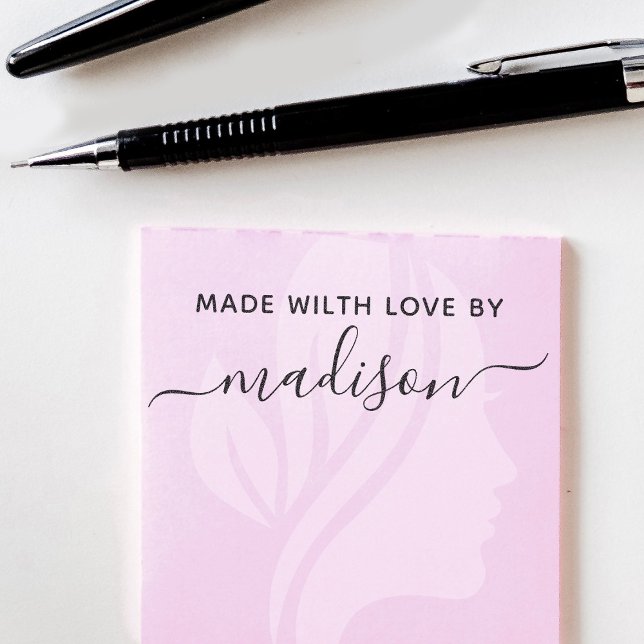 MADE WILTH LOVE BY
madison